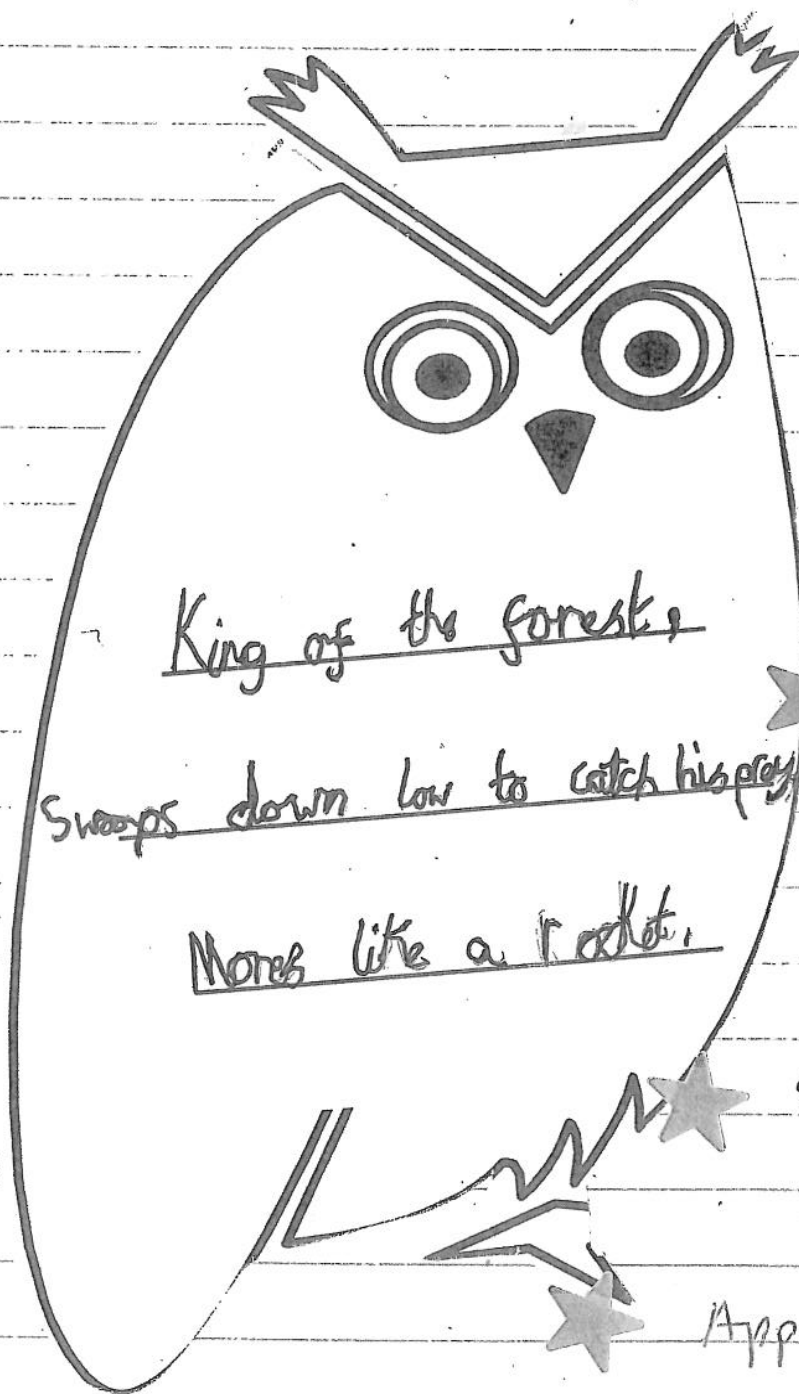 King of the forest,
Swoops down low to catch his prey,
Moves like a rocket.
App